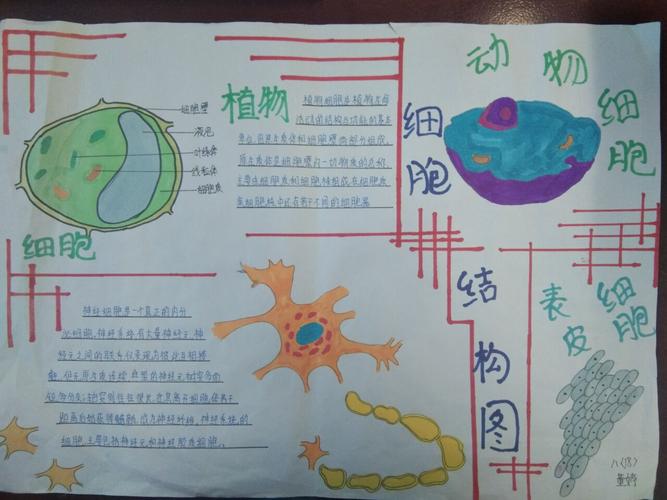 细胞壁
液泡
叶绿体
线粒体
细胞质
细胞
植物
植物细胞是植物生命
活动的结构与功能的基本
单位,由原生质体和细胞壁两部分组成。
原生质体是细胞壁内一切物质的总称,
主要由细胞质和细胞核组成,在细胞质
或细胞核中还有若干不同的细胞器
细胞
动物
细胞
神经细胞是一个真正的内分
泌细胞,神经系统有大量神经元,神
经元之间的联系仅表现为彼此互相接
触,但无原生质连续
的
细胞,主要包括神经元和神经胶质细胞。
结构图
表皮
细胞
八(18)